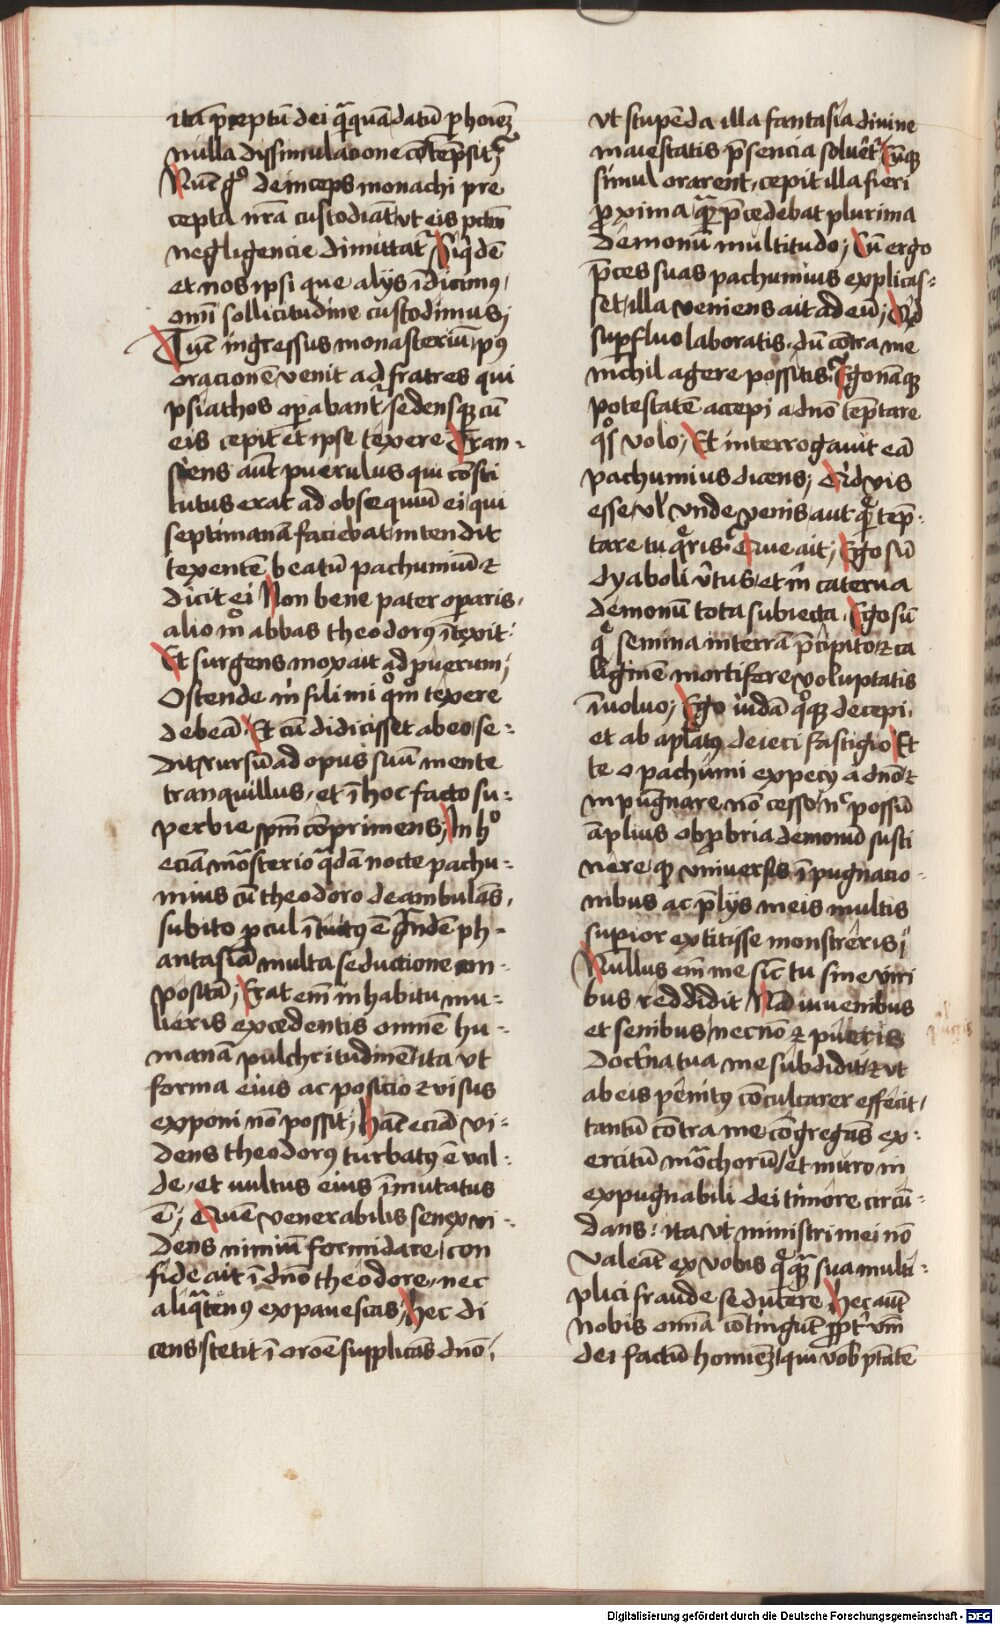 ita p̄ceptū dei q̄ꝗuā datū p hoīez
nulla dissimulacione cōtēpsit
Nūc gͦ deinceps monachi pre
cepta nr̄a custodiāt vt eis pctm̄
negligencie dimittatᷣ Siqͥdē
et nos ipsi que alijs īdicimꝰ
omī sollicitudine custodimus;
Tūc ingressus monasteriū pꝰ
oracionē venit ad fratres qui
psiathos oꝑabantᷣ sedensqꝫ cū
eis cepit et ipse texere Tran-
siens aūt puerulus qui cōsti
tutus erat ad obsequiū ei qui
septimanā faciebat intendit
texentē beatū pachumiū ⁊
dicit ei Non bene pater oꝑaris
alio mͦ abbas theodorꝰ ītexit
Et surgens mox ait ad puerum;
Ostende m̄ fili mi qͦm̄ texere
debeā Et cū didicisset ab eo se-
dit rursū ad opus suū mente
tranquillus et ī hoc facto su-
perbie spm̄ cōprimens; In hͦ
eciā mōsterio q̄dā nocte pachu-
mius cū theodoro deambulās
subito ꝓcul ītuitꝰ ē Indē ph-
antasiā multa seductione con-
positā; Erat em̄ in habitu mu-
lieris excedentis omnē hu-
manā pulchritudinē ita vt
forma eius ac posicio ⁊ visus
exponi nō possit; hāc eciā vi-
dens theodorꝰ turbatꝰ ē val-
de et uultus eius īmutatus
ē; Quē venerabilis senex vi-
dens nimiū formidare con
fide ait ī dnō theodore nec
aliq̄tenꝰ expauescas; hec di
cens stetit ī orōe supplicās dnō
vt stupēda illa fantasia diuine
maiestatis p̄sencia soluētᷣ Cūqꝫ
simul orarent cepit illa fieri
ꝓxima q̄ꝫ p̄cedebat plurima
demonū multitudo; Cū ergo
p̄ces suas pachumius explicas-
set illa veniens ait ad eū; Qͥd
suꝑfluo laboratis dū cōtra me
nichil agere possitis Ego nāqꝫ
potestatē accepi a dnō tēptare
qͦs volo; Et interrogauit eā
pachumius dicens; Qͥd vis
esse vl̄ vnde venis aut q̄ꝫ tēp-
tare tu q̄ris Que ait; Ego sū
dyaboli v̄tus et m̄ caterua
demonū tota subiecta Ego sū
q̄ semina in terrā p̄cipito ⁊ ca
liginē mortifere voluptatis
īuoluo; Ego iudā qͦqꝫ decepi
et ab aplatꝰ deieci fastigio Et
te o pachumi expecij a dnō ⁊
inpūgnare nō cesso nͨ possū
āplius obꝓbria demonū susti
nere qꝫ vniuersis īpugnacio-
nibus ac p̄lijs meis multis
suꝑior extitisse monstreris;
Nullus em̄ me sic̄ tu sine viri
bus reddidit Nā iuuenibus
et senibus necnō ⁊ pueris
doctͥna tua me subdidit ⁊ vt
ab eis penitꝰ cōculcarer effecit
tantū cōtra me cōgregās ex-
ercitū mōchorū et muro in
expugnabili dei timore circū-
dans ita vt ministri mei nō
valeāt ex vobis q̄ꝗ̄ sua multi-
plici fraude seducere hec aūt
nobis omīa cōtingūt ꝓptͬ vm̄
dei factū hominez qui vob ptatē
Digitalisierung gefördert durch die Deutsche Forschungsgemeinschaft - DFG